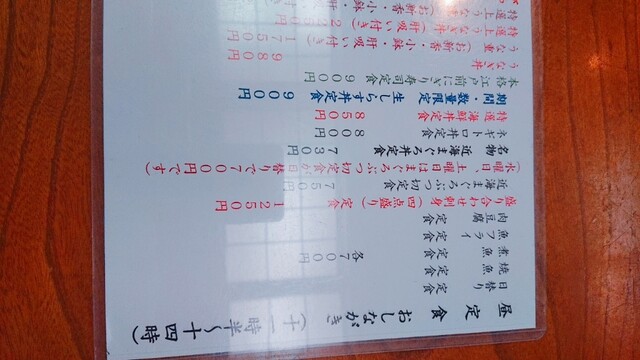 昼定食 おしながき (十一時半～十四時)
日替り定食
焼魚定食
煮魚定食 各700円
魚フライ定食
肉豆腐定食
盛り合わせ刺身(四点盛り)定食 1250円
近海まぐろぶつ切定食 750円
(水曜日、土曜日はまぐろぶつ切定食が日替りで700円です)
名物 近海まぐろ丼定食 730円
ネギトロ丼定食 800円
特選海鮮丼定食 850円
期間・数量限定 生しらす丼定食 900円
本格江戸前にぎり寿司定食 900円
うなぎ丼 980円
うな重(お新香・小鉢・肝吸い付き) 1750円
特選上うなぎ丼
特選上うな重(お新香・小鉢・肝吸い付き)